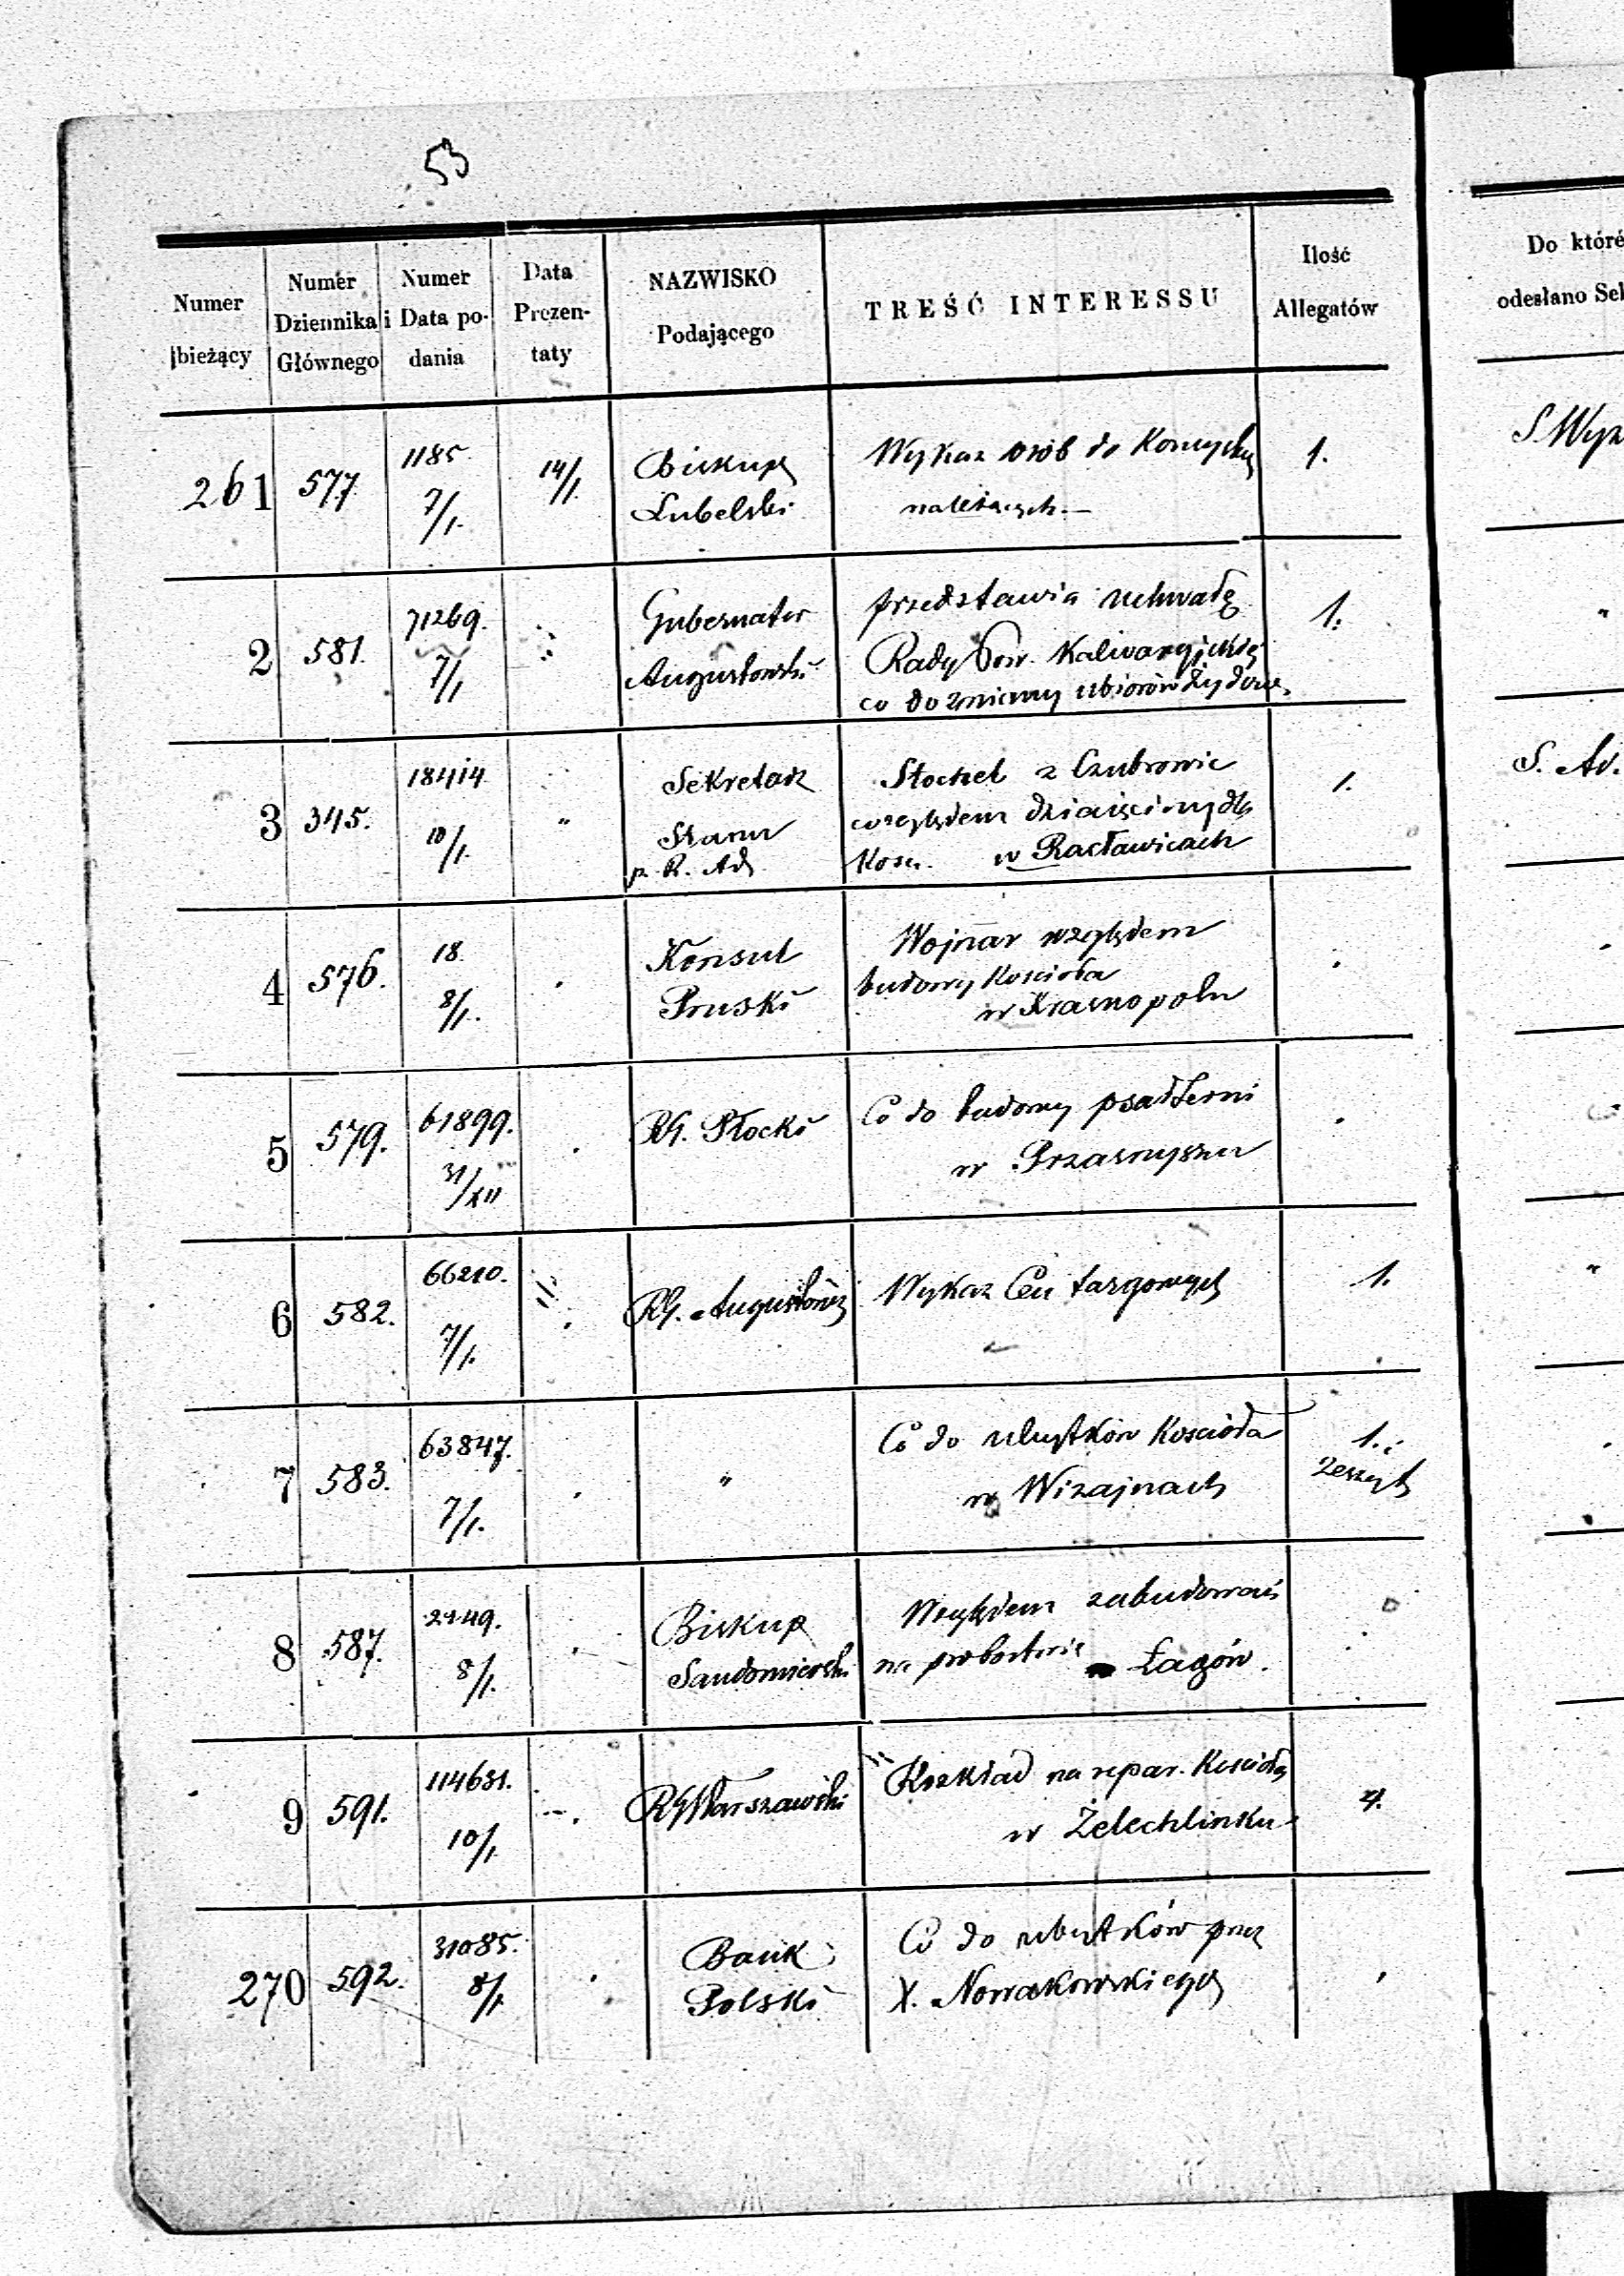 53
Numer bieżący
Numer Dziennika Głównego
Numer i Data podania
Data Prezentaty
NAZWISKO Podającego
TREŚĆ INTERESSU
Ilość Allegatów
Do któré
odesłano Sek
261 577 1185 7/1. 14/1 Biskup Lubelski
Wykaz osób do
należących.— 1.
2 581. 71269. 7/1 Gubernator Augustowski
przedstawia uchwałę
Rady Pow. Kalwaryjskiej
co do zmiany ubiorów Żydow. 1.
3 345. 18414 10/1. " Sekretarz Stanu p. R. Ad
Stochel z Czubrowic
względem dziesięciny dla
Kosc. w Racławicach 1.
S. Ad.
4 576. 18. 8/1. Konsul Pruski
Wojnar względem
budowy Kościoła
w Krasnopolu
5 579. 61899. 31/XII RG. Płocki
Co do budowy
w Przasnyszu
6 582. 66210. 7/1. RG. Augustows
Wykaz Cen targowych 1.
7 583. 63847. 7/1. "
Co do ubytków Kościoła
w Wizajnach 1. Zeszyt
8 587. 2449. 8/1. Biskup Sandomierski
Względem zabudowań
na probostwie Łagów.
9 591. 114631. 10/1 RG Warszawski
Rozkład na repar. Kościoła
w Żelechlinku 4.
270 592. 31085. 8/1. Bank Polski
Co do ubytków prez
X. Nowakowskiego